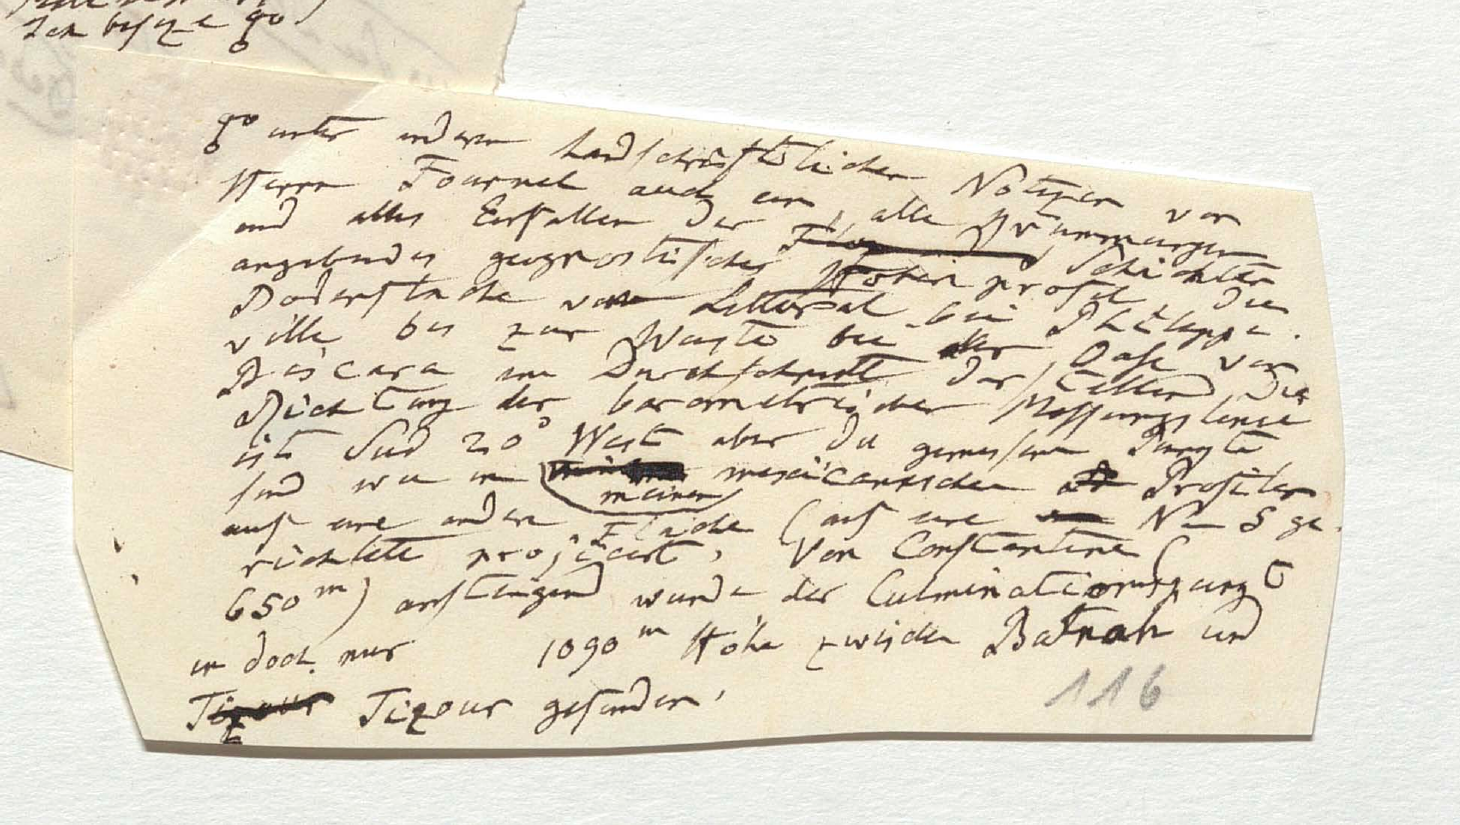 Ich besize
unter andren handschriftlichen Notizen von
Herrn Fournel auch ein, alle Krümmungen
und alles Einfallen der Schichten
angebendes geognostisches Höhenprofil, die
Bodenfläche vom Littoral bei Philippe-
ville bis zur Wüste bei der Oase von
Biscara im Durchschnitt darstellend Die
Richtung der barometrischen Messungslinie
ist Süd 20° West aber die gemessenen Punkte
sind wie in meinen mexicanischen Profilen
auf eine andere Fläche (auf eine N–S ge-
richtete) projicirt. Von Constantine (
650m) ansteigend wurde der Culminationspunkt
in doch nur 1090m Höhe zwischen Batnah und
Tizour gefunden.
116